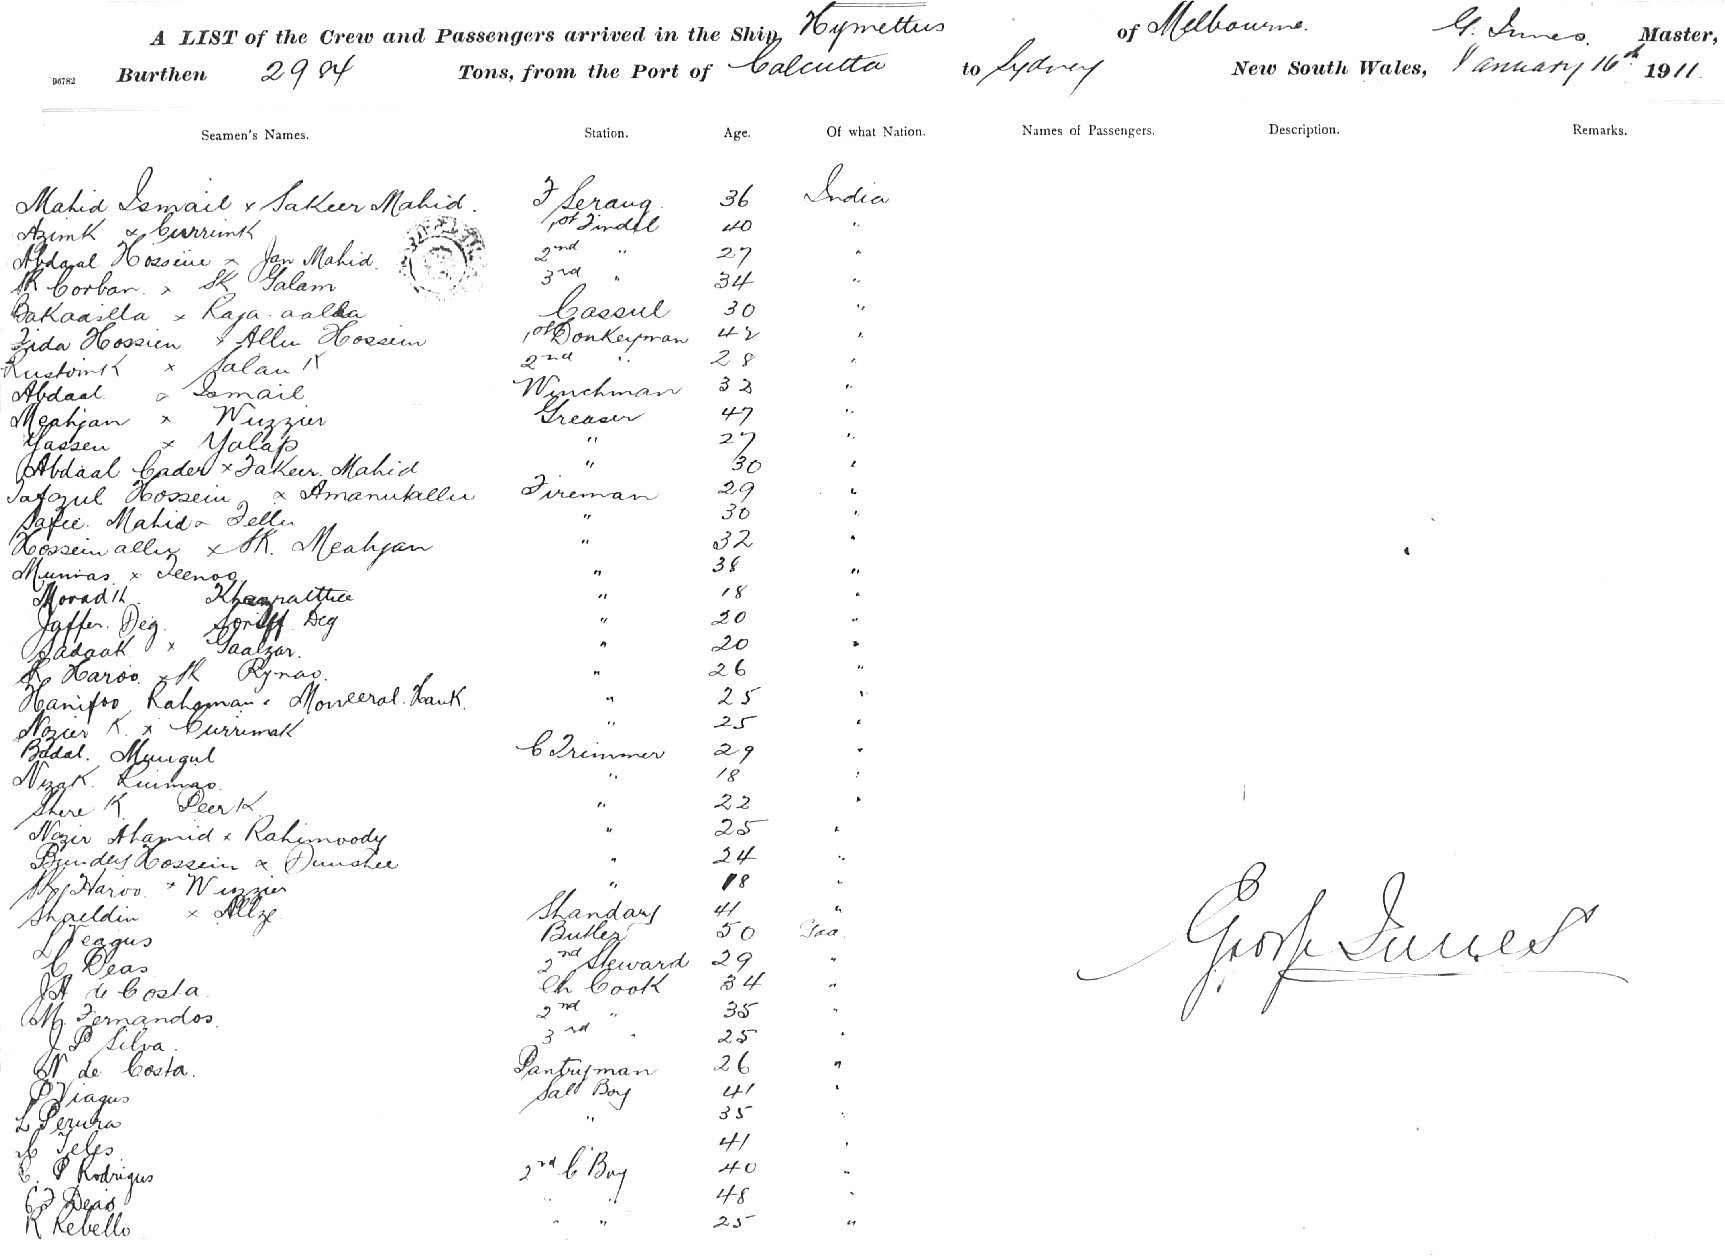 A LIST of the Crew and Passengers arrived in the Ship Hymettus of Melbourne. G. Innes. Master,
96782 Burthen 2984 Tons, from the Port of Calcutta to Sydney New South Wales, January 16th 1911.
Seamen's Names. Station. Age. Of what Nation. Names of Passengers. Description. Remarks.
Mahid Ismail x Fakeer Mahid. F Serang. 36 India
Azimk x Currimk 1st Tindel 40 "
Abdaal Hosseine x Jan Mahid. 2nd " 27 "
Sk Corban x Sk Salam 3rd " 34 "
Bakaailla x Raja aalla Cassul 30 "
Fida Hossien x Allu Hossein 1st Donkeyman 42 "
Rustomk x Salan K 2nd " 28 "
Abdaal x Ismail Winchman 32 "
Meahjan x Wuzzier Greaser 47 "
Yassen x Yalap " 27 "
Abdaal Cader x Fakeer Mahid " 30 "
Tafazul Hossein x Amanutallu Fireman 29 "
Safee Mahid x Fellu " 30 "
Hossein alley x SK. Meahjan " 32 "
Munias x Teenoo " 38 "
Moradk. " 18 "
Jaffer. Deg. Soriff Deg " 20 "
Sadaak x Gaalzar. " 20 "
Sk Haroo x Sk Rynao. " 26 "
Hanifoo Rahaman x Monceral Hauk. " 25 "
Nozier K. x Currimak " 25 "
Badal. Mungul C Trimmer 29 "
Nizak. Luimao. " 18 "
Shere K Peer K " 22 "
Nazir Ahamid x Rahimoody " 25 "
Bundey Hossein x Dunshee " 24 "
Sk Haroo x Wuzzier " 18 "
Shaeldin x Allze Bhandary 41 "
L Veagus Butler 50 Goa.
C Deas 2nd Steward 29 "
JA de Costa. Ch Cook 34 "
M Fernandos. 2nd " 35 "
J P Silva. 3rd " 25 "
N de Costa. Pantryman 26 "
P Viagus Sal Boy 41 "
L Perura " 35 "
C Teles 41 "
C. P Rodrigus 2nd C Boy 40 "
C F Deas " " 48 "
R Rebello " " 25 "
George Innes